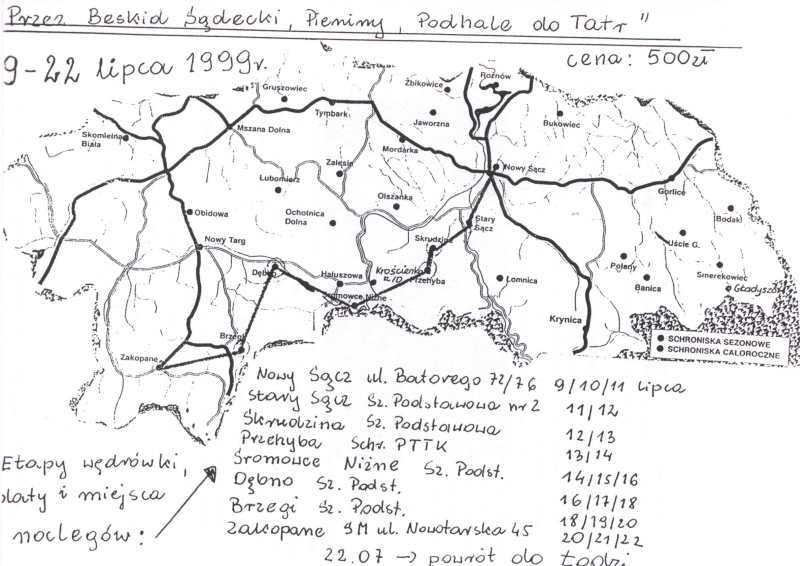 Przez Beskid Sądecki, Pieniny, Podhale do Tatr"
9-22 lipca 1999r.
cena: 500zł
Gruszowiec
Żbikowice
Rożnów
Tymbark
Jaworzna
Bukowiec
Skomielna
Biała
Mszana Dolna
Mordarka
Zalesie
Nowy Sącz
Lubomierz
Gorlice
Olszanka
Obidowa
Ochotnica
Dolna
Stary
Sącz
Bodaki
Nowy Targ
Skrudzina
Uście G.
Dębno
Hałuszowa
Krościenko
n/D
Przehyba
Łomnica
Polany
Banica
Smerekowiec
Gładyszów
Sromowce Niżne
Krynica
Brzegi
Zakopane
SCHRONISKA SEZONOWE
SCHRONISKA CAŁOROCZNE
Nowy Sącz ul. Batorego 72/76 9/10/11 lipca
Stary Sącz Sz. Podstawowa nr 2 11/12
Skrudzina Sz. Podstawowa 12/13
Przehyba Schr. PTTK 13/14
Sromowce Niżne Sz. Podst. 14/15/16
Dębno Sz. Podst. 16/17/18
Brzegi Sz. Podst. 18/19/20
Zakopane SM ul. Nowotarska 45 20/21/22
22.07 → powrót do Łodzi
Etapy wędrówki,
daty i miejsca
noclegów: